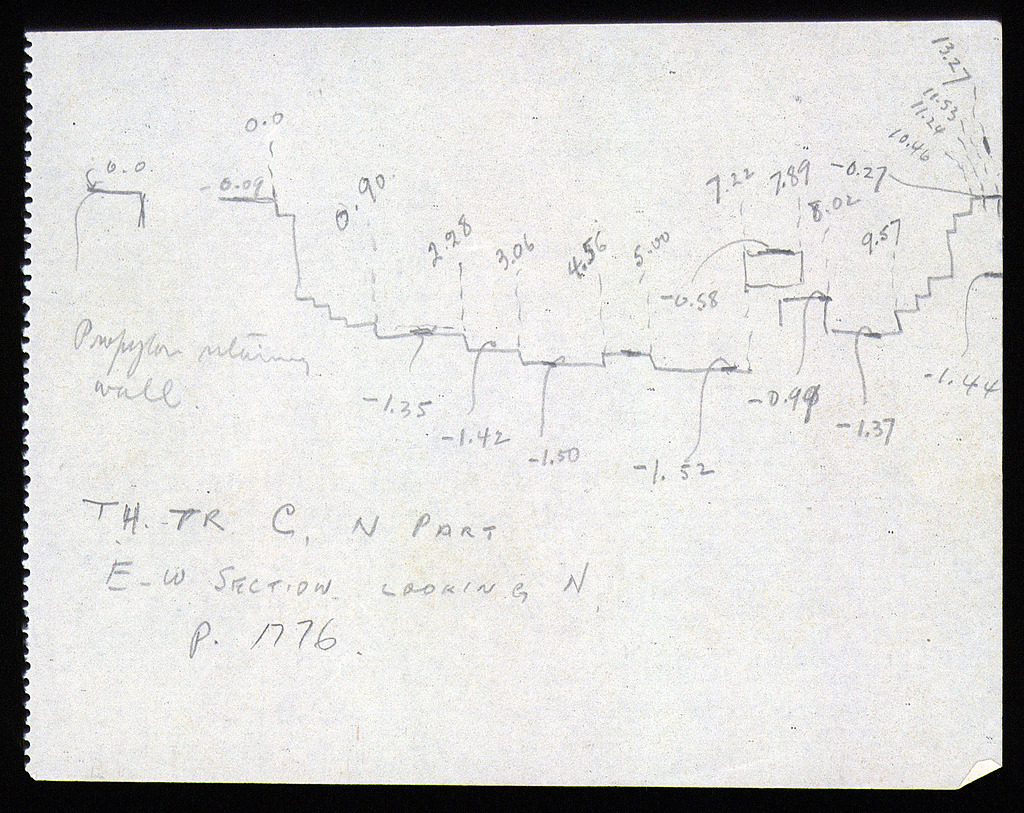 13.27
11.53
11.24
10.46
0.0
0.0.
-0.09
0.90
2.28
3.06
4.56
5.00
7.22
7.89
8.02
-0.27
9.57
-0.58
Propylon retaining
wall.
-1.35
-1.42
-1.50
-1.52
-1.37
-1.44
TH. TR. C, N PART
E-W SECTION LOOKING N.
P. 1776